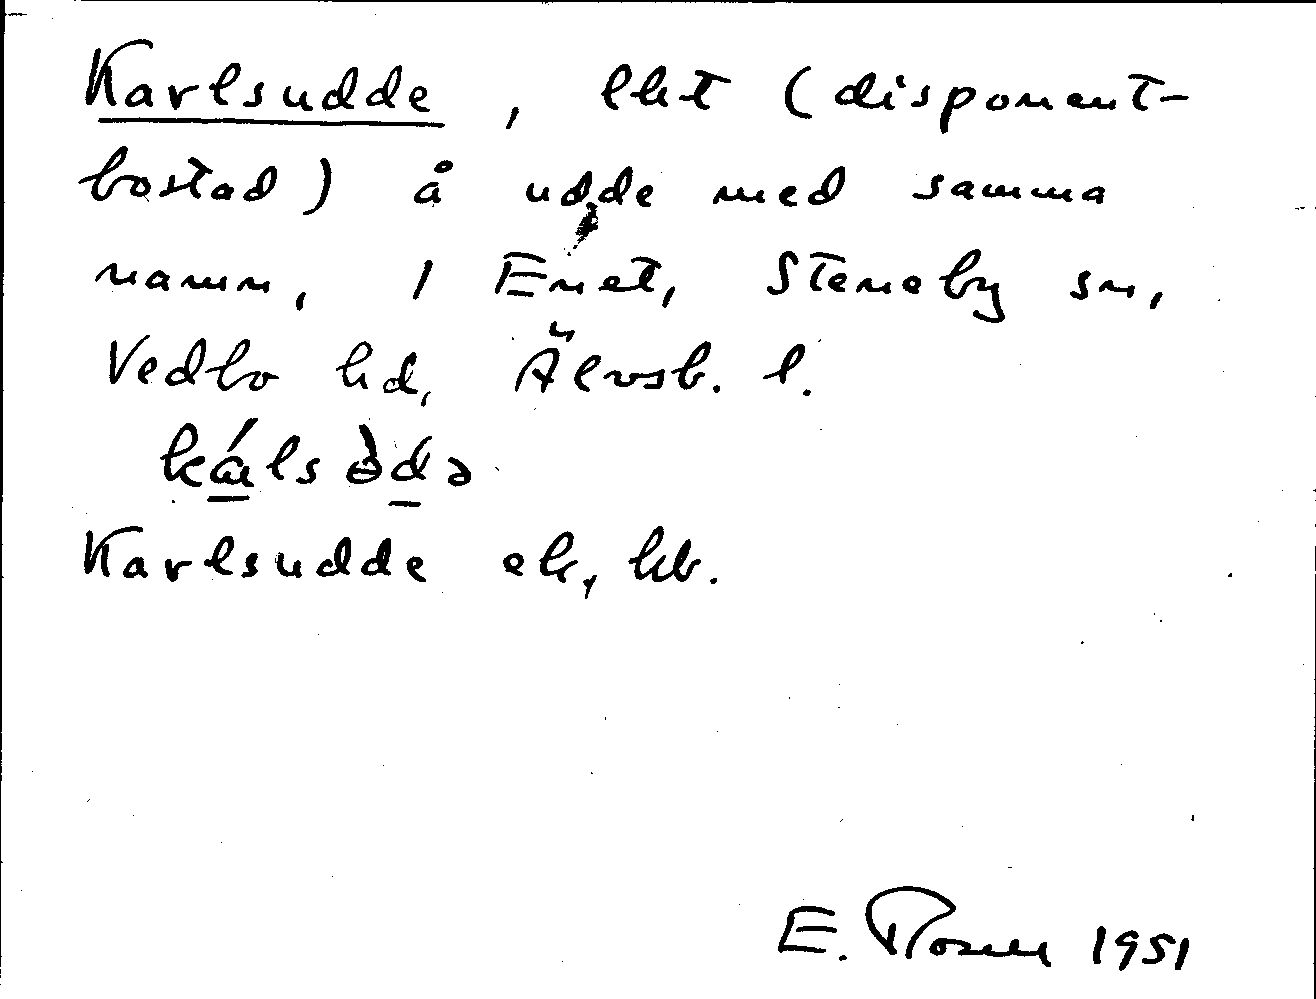 Karlsudde, lht (disponent-
bostad) å udde med samma
namn, i Enet, Steneby sn,
Vedbo hd, Älvsb. l.
kálsòdə
Karlsudde ek, kb.
E. Rosell 1951